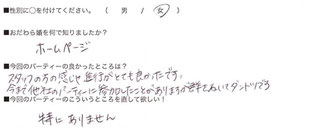 ■性別に○を付けてください。 ( 男 / 女 )
■おだわら婚を何で知りましたか?
ホームページ
■今回のパーティーの良かったところは?
スタッフの方の感じや進行がとても良かったです。
今まで他社のパーティーに参加したことがありますが群をぬいてダンドリでる
■今回のパーティーのこういうところを直して欲しい!
特にありません